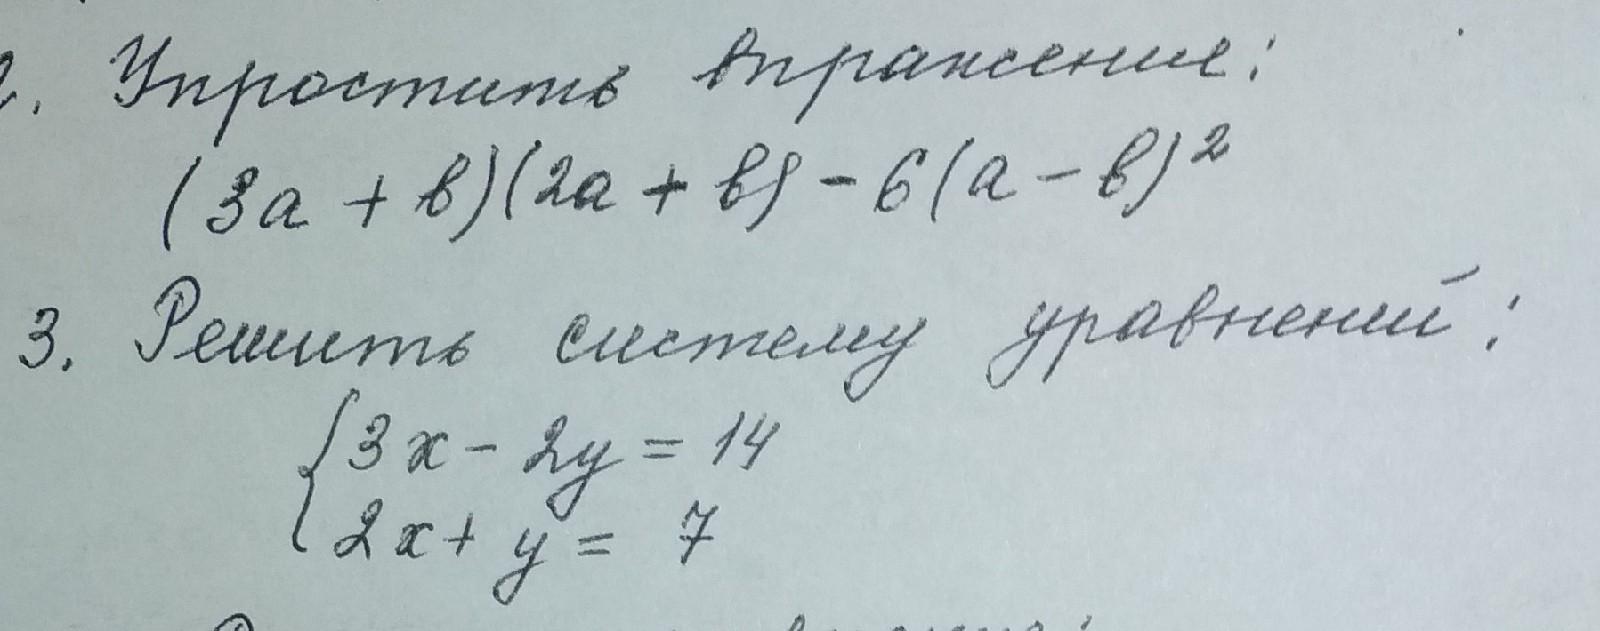 2. Упростить выражение:
(3a + b)(2a + b) - 6(a - b)²
3. Решить систему уравнений:
{3x - 2y = 14
2x + y = 7